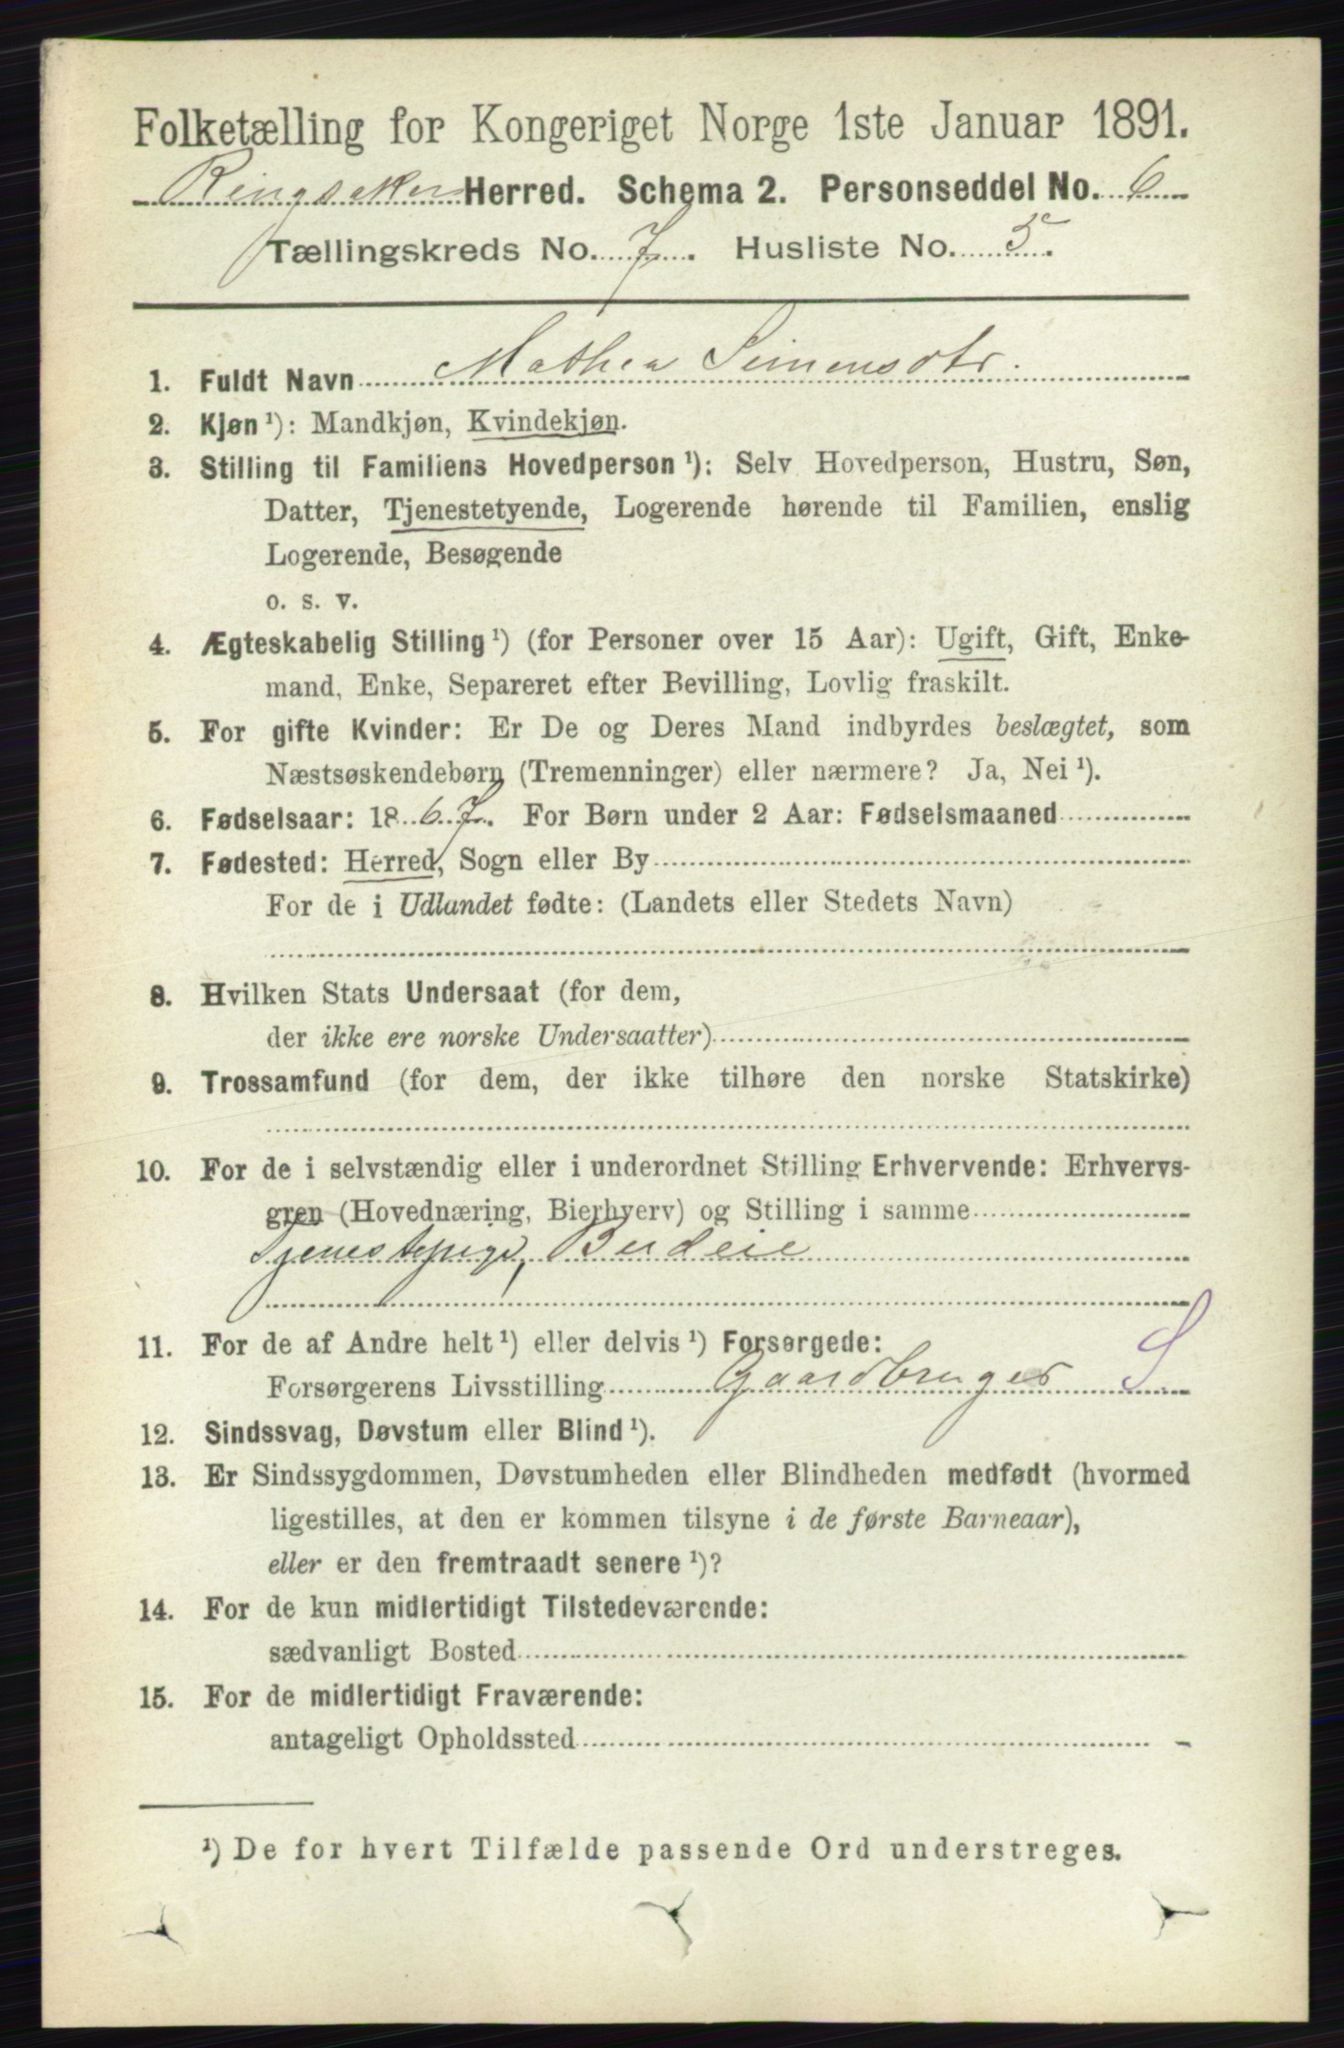 Folketælling for Kongeriget Norge 1ste Januar 1891.
Ringsaker Herred. Schema 2. Personseddel No. 6
Tællingskreds No. 7. Husliste No. 5.
1. Fuldt Navn Mathea Simensdtr.
2. Kjøn ¹): Mandkjøn, Kvindekjøn.
3. Stilling til Familiens Hovedperson ¹): Selv Hovedperson, Hustru, Søn,
Datter, Tjenestetyende, Logerende hørende til Familien, enslig
Logerende, Besøgende
o. s. v.
4. Ægteskabelig Stilling ¹) (for Personer over 15 Aar): Ugift, Gift, Enke-
mand, Enke, Separeret efter Bevilling, Lovlig fraskilt.
5. For gifte Kvinder: Er De og Deres Mand indbyrdes beslægtet, som
Næstsøskendebørn (Tremenninger) eller nærmere? Ja, Nei ¹).
6. Fødselsaar: 1867. For Børn under 2 Aar: Fødselsmaaned
7. Fødested: Herred, Sogn eller By
For de i Udlandet fødte: (Landets eller Stedets Navn)
8. Hvilken Stats Undersaat (for dem,
der ikke ere norske Undersaatter)
9. Trossamfund (for dem, der ikke tilhøre den norske Statskirke)
10. For de i selvstændig eller i underordnet Stilling Erhvervende: Erhvervs-
gren (Hovednæring, Bierhverv) og Stilling i samme
Tjenestepige, Budeie
11. For de af Andre helt ¹) eller delvis ¹) Forsørgede:
Forsørgerens Livsstilling Gaardbruger S
12. Sindssvag, Døvstum eller Blind ¹).
13. Er Sindssygdommen, Døvstumheden eller Blindheden medfødt (hvormed
ligestilles, at den er kommen tilsyne i de første Barneaar),
eller er den fremtraadt senere ¹)?
14. For de kun midlertidigt Tilstedeværende:
sædvanligt Bosted
15. For de midlertidigt Fraværende:
antageligt Opholdssted
¹) De for hvert Tilfælde passende Ord understreges.